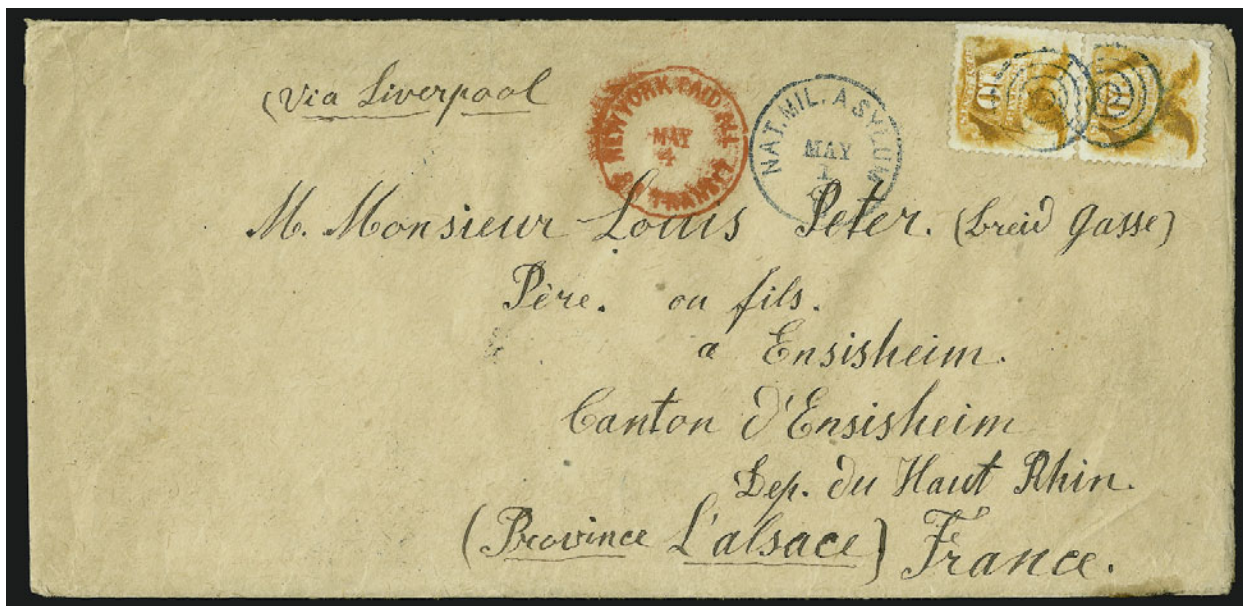 (Via Liverpool
NEW YORK PAID ALL
MAY
4
BR. TRANSIT
NAT. MIL. ASYLUM
MAY
1
10
10
M. Monsieur Louis Peter. (breid gasse)
Père. ou fils.
a Ensisheim.
Canton d'Ensisheim
Dep. du Haut Rhin.
(Province L'alsace) France.